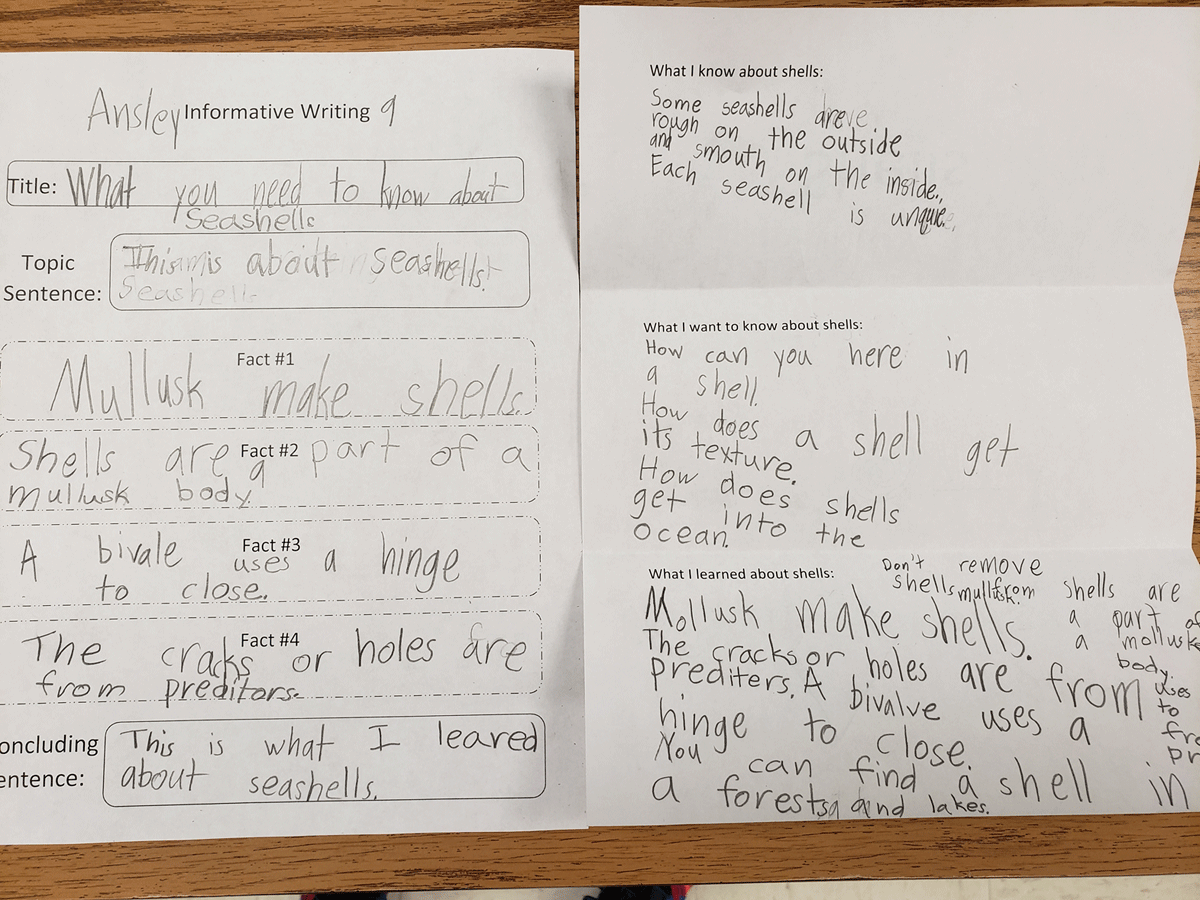 Ansley Informative Writing 9
Title: What you need to know about
Seashells
Topic
Sentence:
This is about seashells.
Seashells
Fact #1
Mullusk make shells.
Fact #2
Shells are a part of a
mullusk body.
Fact #3
A bivale uses a hinge
to close.
Fact #4
The cracks or holes are
from preditors.
oncluding
entence:
This is what I leared
about seashells.
What I know about shells:
Some seashells are
rough on the outside
and smouth on the inside.
Each seashell is unque.
What I want to know about shells:
How can you here in
a shell.
How does a shell get
its texture.
How does shells
get into the
ocean.
What I learned about shells:
Don't remove
shells from
mullusk.
Mollusk make shells.
The cracks or holes are from
prediters. A bivalve uses a
hinge to close.
You can find a shell in
a forests and lakes.
shells are
a part of
a molluske
body.
uses
to
fr
pr